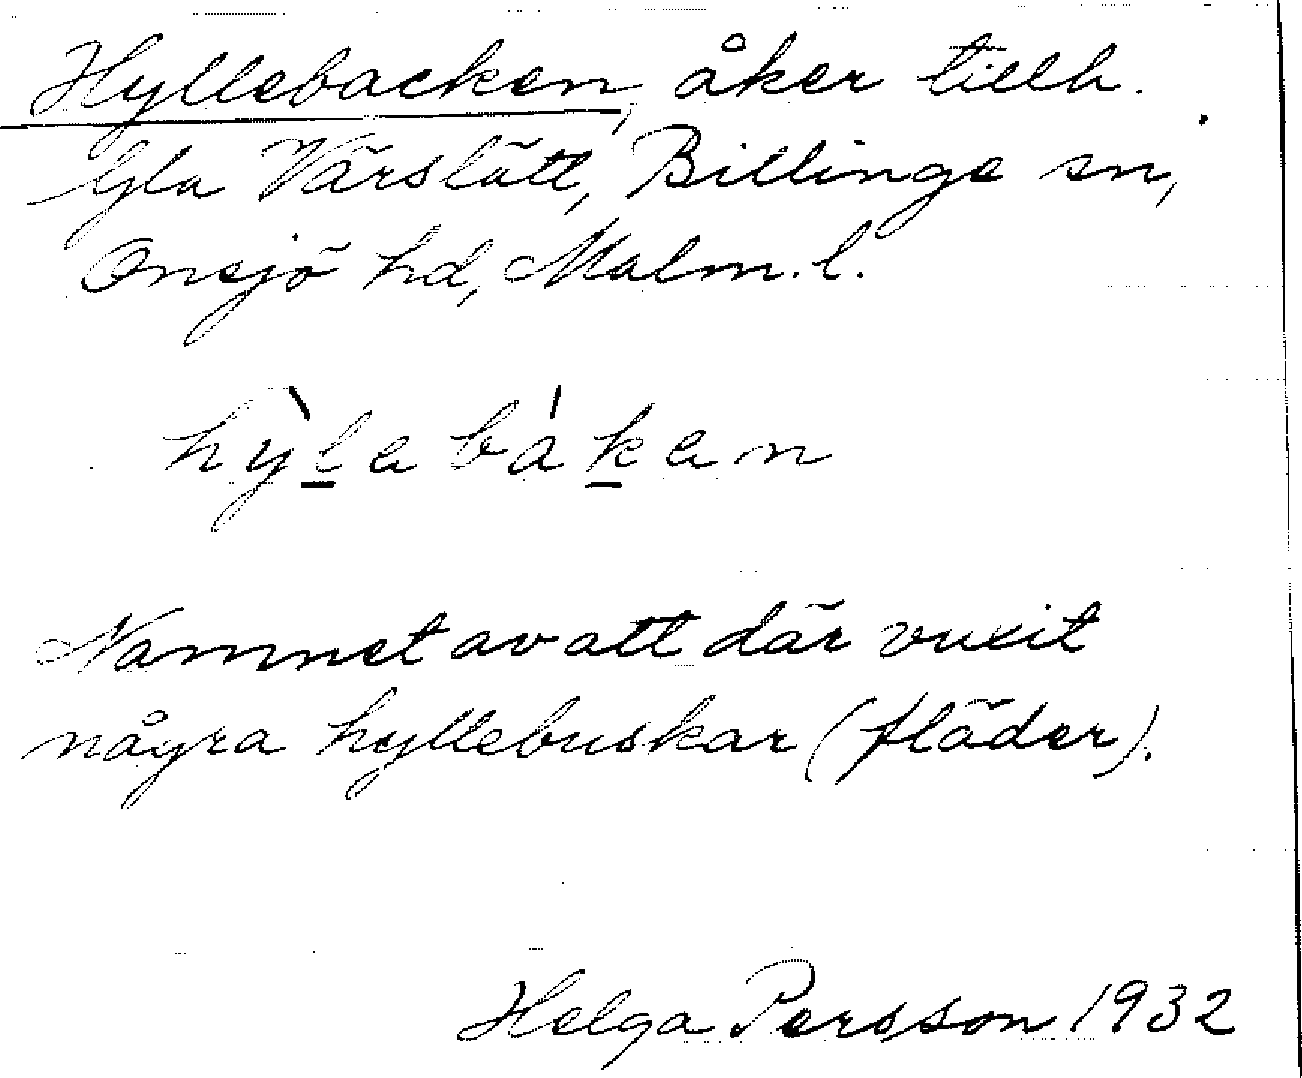 Hyllebacken, åker tillh.
Gla Värslätt, Billinge sn,
Onsjö hd, Malm. l.
hỳ̱lebáḵen
Namnet av att där vuxit
några hyllebuskar (fläder).
Helga Persson 1932